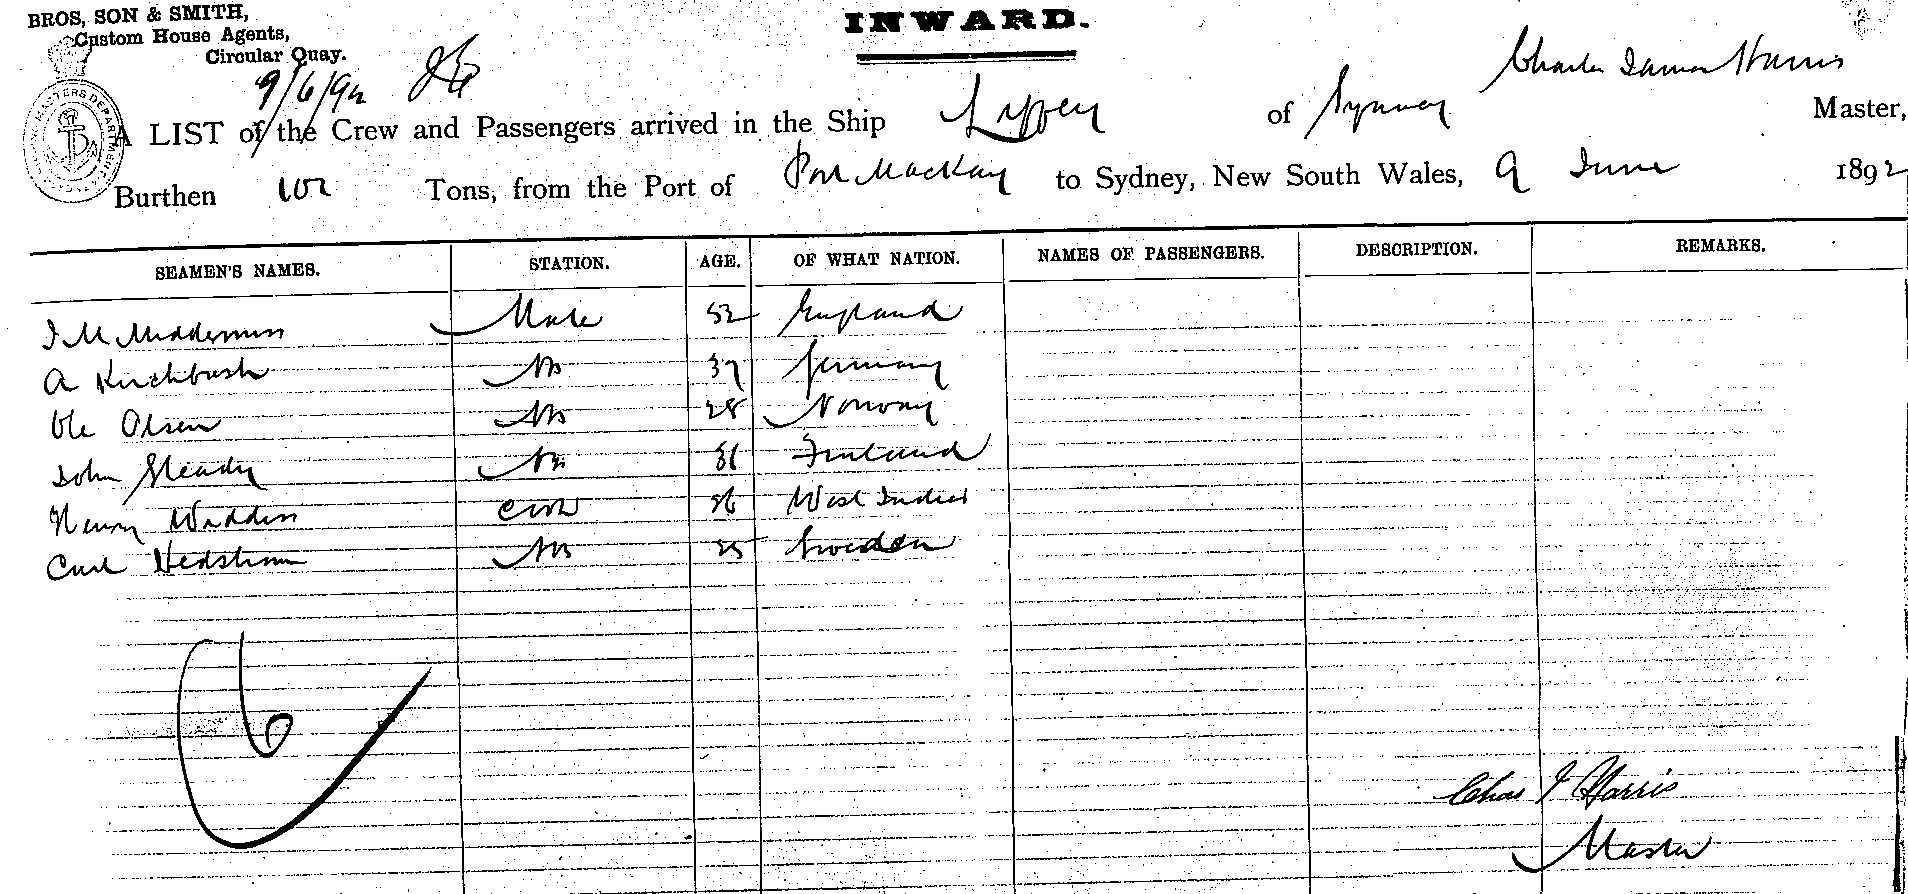 BROS, SON & SMITH,
Custom House Agents,
Circular Quay.
INWARD.
9/6/92
Charles James Harris
A LIST of the Crew and Passengers arrived in the Ship of Sydney Master,
Burthen 102 Tons, from the Port of Port Mackay to Sydney, New South Wales, 9 June 1892
SEAMEN'S NAMES. STATION. AGE. OF WHAT NATION. NAMES OF PASSENGERS. DESCRIPTION. REMARKS.
J M Middlemiss Mate 52 England
A Kirchbush AB 37 Germany
Ole Olsen AB 28 Norway
John Gleady AB Finland
Henry Waddin Cook 36 West Indies
Carl Hedstrom AB 25 Sweden
6
Chas J Harris
Master